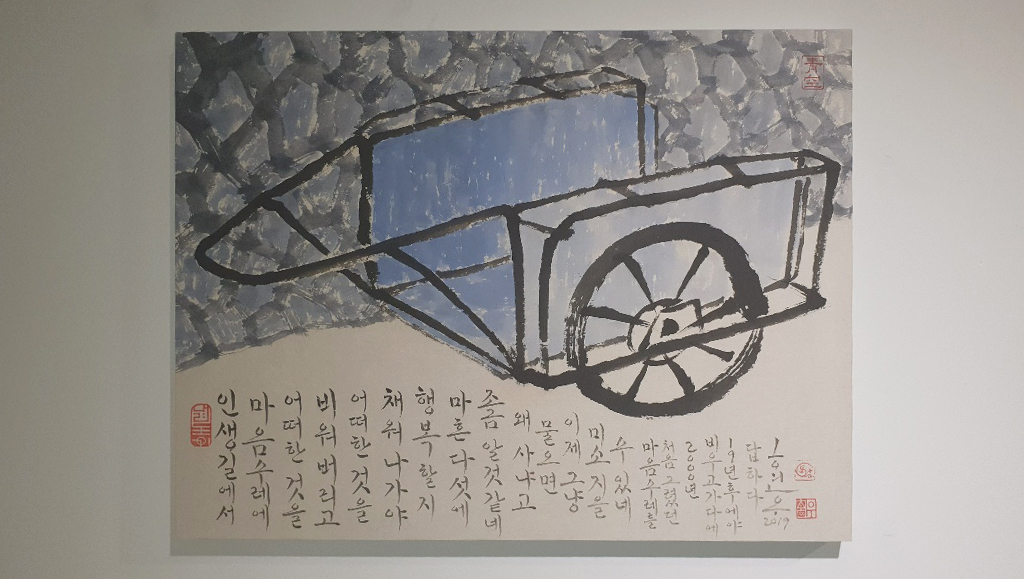 인생길에서
마음수레에
어떠한 것을
비워버리고
어떠한것을
채워나가야
행복할지
마흔다섯에
조금 알것같네
왜 사냐고
물으면
이제 그냥
미소지을
수 있네
마음수레를
처음 그렸던
2000년
비우고가다에
19년후에야
답하다
2019